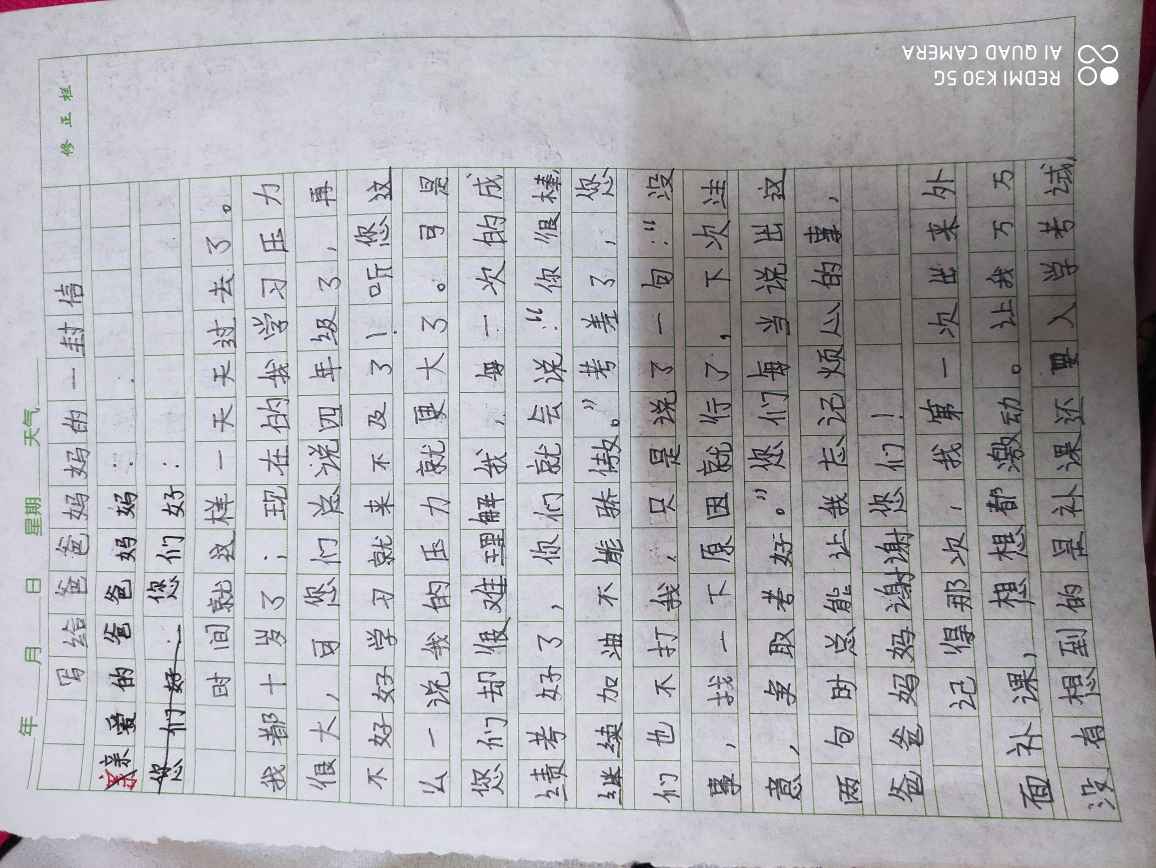 年 月 日 星期 天气
修正栏
写给爸爸妈妈的一封信
亲爱的爸爸妈妈：
您们好：
您们好：
时间就这样一天天过去了。
我都十岁了；现在的我学习压力
很大，可您们总说四年级了，再
不好好学习就来不及了！听您这
么一说我的压力就更大了。可是
您们却很难理解我，每一次的成
绩考好了，你们就会说：“你很棒
继续加油不能骄傲。”考差了，您
们也不打我，只是说了一句：“没
事，找一下原因就行了，下次注
意，争取考好。”您们每当说出这
两句时总能让我忘记烦心的事，
爸爸妈妈谢谢您们！
记得那次，我第一次出来外
面补课，想想都激动。让我万万
没有想到的是补课还要入学考试，
REDMI K30 5G
AI QUAD CAMERA